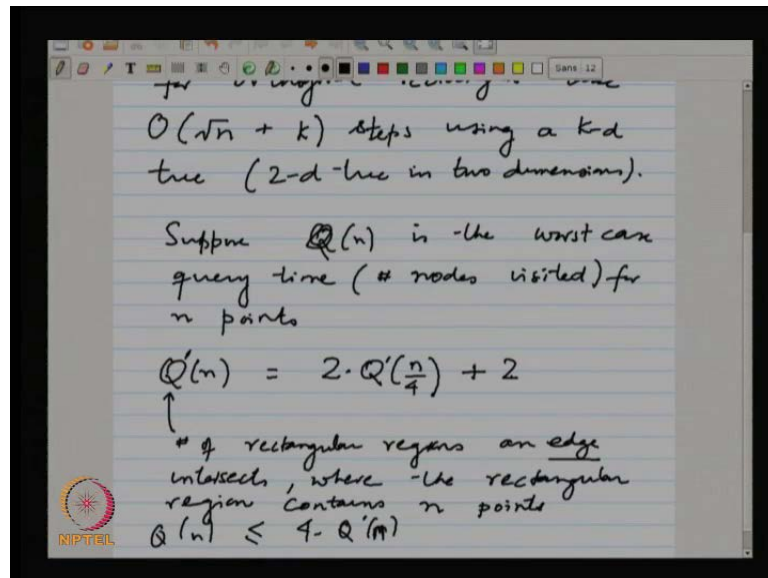 Sans 12
for orthogonal
O(√n + k) steps using a k-d
tree (2-d-tree in two dimensions).
Suppose Q(n) is the worst case
query time (# nodes visited) for
n points
Q'(n) = 2·Q'(n/4) + 2
↑
# of rectangular regions an edge
intersects, where the rectangular
region contains n points
Q(n) ≤ 4·Q'(n)
NPTEL